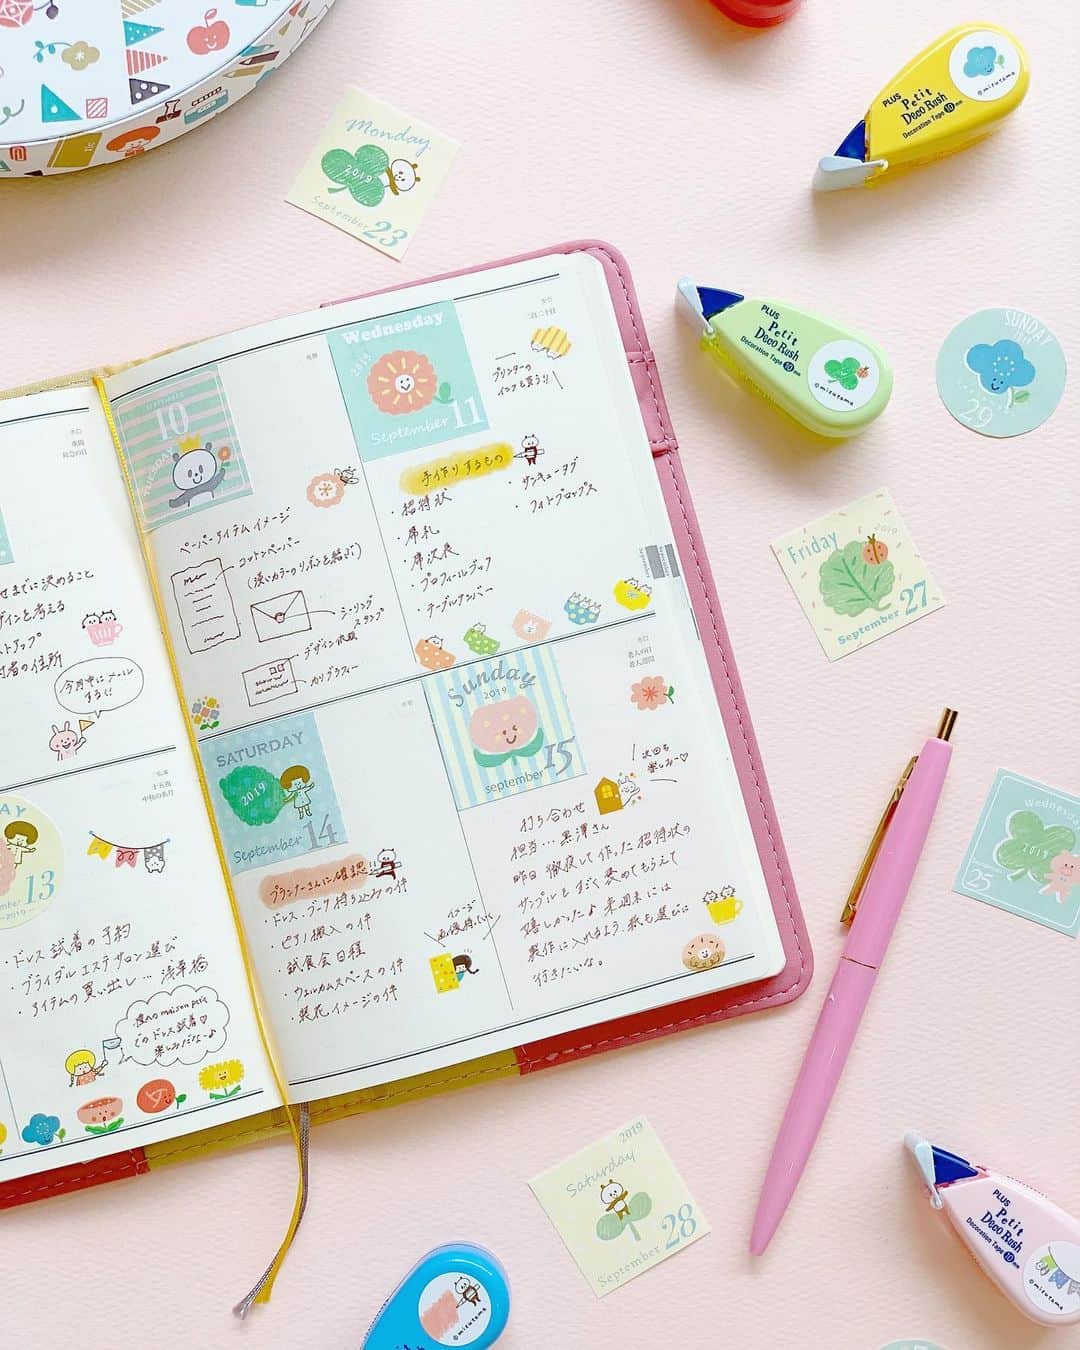 Monday
2019
September 23
PLUS
Petit
Deco Rush
Decoration Tape 10 mm
@mizutama
PLUS
Petit
Deco Rush
Decoration Tape 10 mm
@mizutama
SUNDAY
29
Friday
2019
September 27
Wednesday
2019
25
Saturday
2019
September 28
PLUS
Petit
Deco Rush
Decoration Tape 10 mm
@mizutama
@mizutama
せまでに決めること
ザインを考える
ストアップ
者の住所
今月中にメール
するく!
13
2019
・ドレス試着の予約
・ブライダルエステサロン選び
・アイテムの買い出し…浅草橋
憧れのmaison petit
でのドレス試着♡
楽しみだな〜♪
10
TUESDAY
ペーパーアイテムイメージ
コットンペーパー
(淡いカラーのリボンを結ぶ)
シーリング
スタンプ
デザイン依頼
カリグラフィー
Wednesday
2019
September 11
プリンターの
インクも買う!!
手作りするもの
・招待状
・席札
・席次表
・プロフィールブック
・テーブルナンバー
・サンキュータグ
・フォトプロップス
SATURDAY
2019
September 14
プランナーさんに確認!!
・ドレス、ブーケ持ち込みの件
・ピアノ搬入の件
・試食会日程
・ウェルカムスペースの件
・装花イメージの件
イメージ
画像持っていく
Sunday
2019
september 15
次回も
楽しみ〜♡
打ち合わせ
担当…黒澤さん
昨日徹夜して作った招待状の
サンプルをすごく褒めてもらえて
嬉しかったよ。来週末には
製作に入れるよう、紙も選びに
行きたいな。